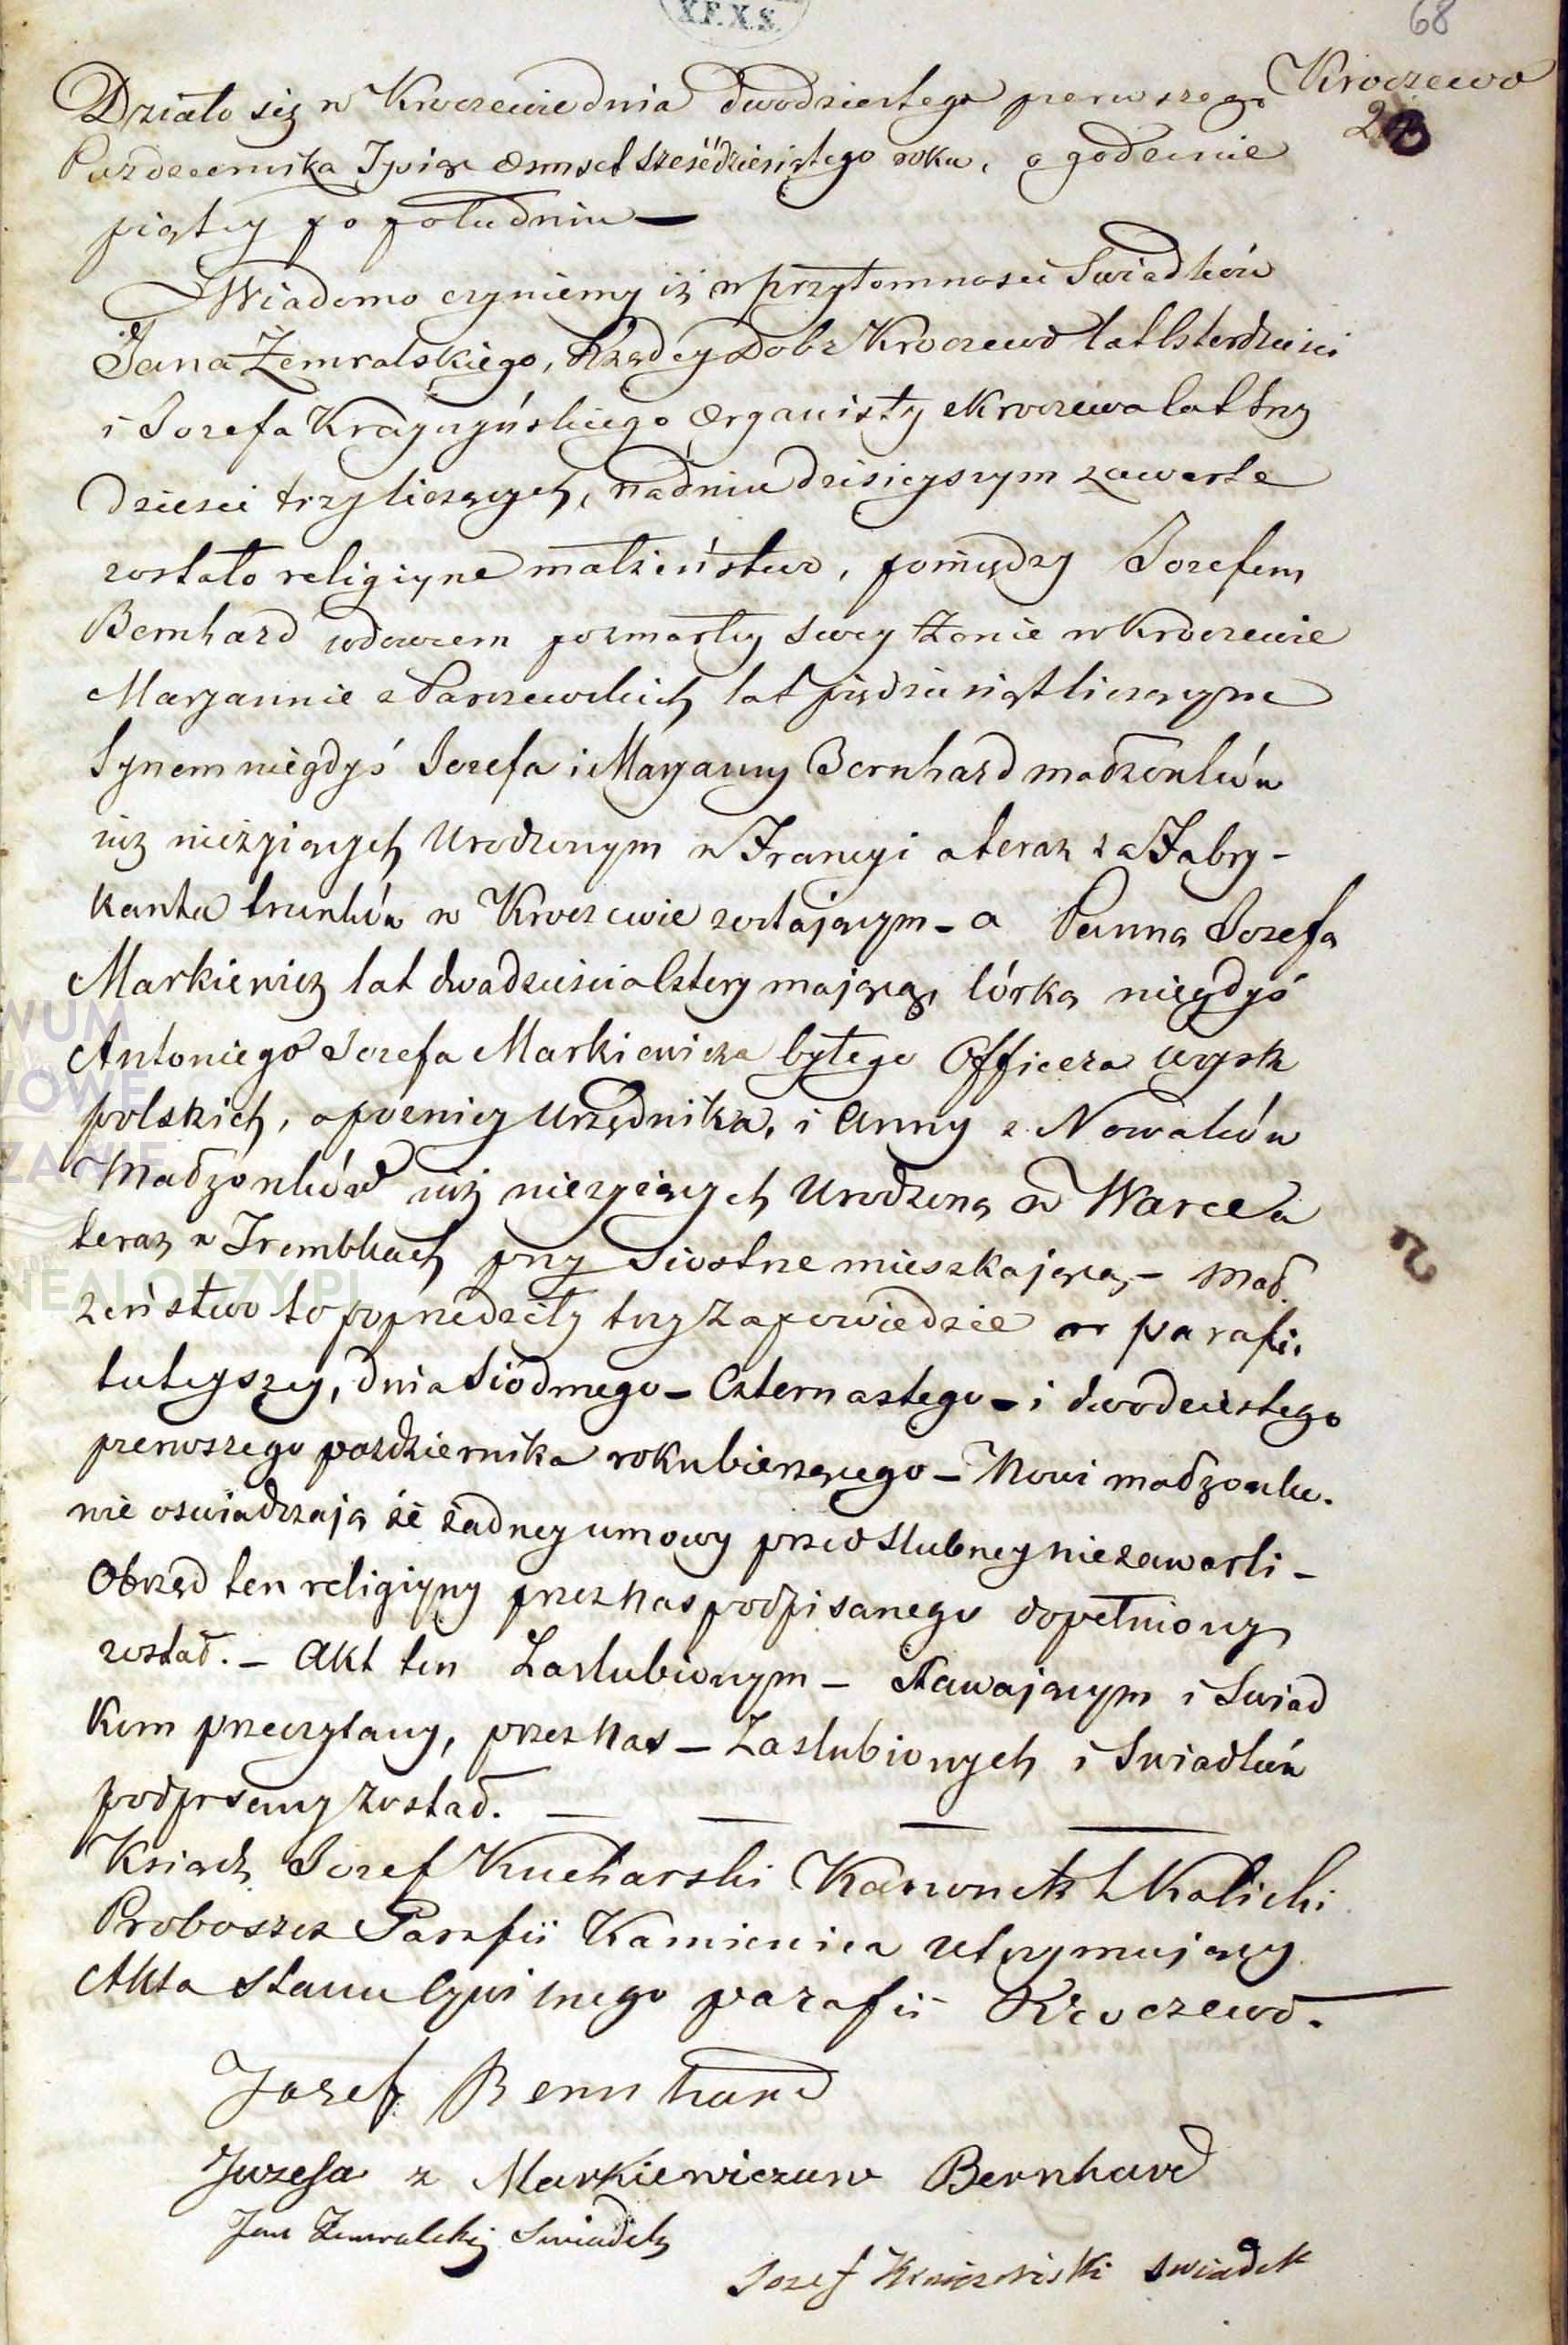 X.F.X.S.
68
Kroczewo
Działo się w Kroczewie dnia dwodziestego pierwszego
Pazdziernika Tysiąc Osmset Sześćdziesiątego roku, o godzinie
piątey po południu —
Wiadomo czyniemy iż w przytomnosci Swiadków
Jana Żemralskiego, Rządcy Dobr Kroczewo lat Czterdzieści
i Jozefa Krajczyńskiego Organisty z Kroczewa lat trzy
dzieści trzy liczących, na dniu dzisieyszym zawarte
zostało religiyne małżeństwo, pomiędzy Jozefem
Bernhard wdowcem po zmarłey swey Żonie w Kroczewie
Maryannie z Parzewskich lat pięćdziesiąt liczącym
Synem niegdyś Jozefa i Maryanny Bernhard małżonków
iuż nieżyiących Urodzonym w Francyi a teraz za Fabry-
kanta trunków w Kroczewie zostającym - a Panną Jozefą
Markiewicz lat dwadzieścia cztery mającą, córką niegdyś
Antoniego Jozefa Markiewicza byłego Officera woysk
polskich, a pozniey Urzędnika, i Anny z Nowaków
Małżonków iuż nieżyiących Urodzoną w Warce a
teraz w Trembkach przy Siostrze mieszkającą, - Mał
żeństwo to poprzedziły trzy Zapowiedzie w parafii
tuteyszey, dnia Siódmego - Czternastego - i dwodziestego
pierwszego pazdziernika roku bieżącego - Nowi małżonko-
wie oswiadczają że żadney umowy przed Slubney niezawarli -
Obrząd ten religiyny przez Nas podpisanego dopełniony
został. - Akt ten Zaslubionym - Stawającym i Swiad
kom przeczytany, przez Nas - Zaslubionych i Swiadków
podpisany został. — — — —
Ksiądz Jozef Kucharski Kanonik Kaliski
Proboszcz Parafii Kamienica utrzymujący
Akta Stanu Cywilnego parafii Kroczewo.
Jozef Bernhard
Juzefa z Markiewiczuw Bernhard
Jan Żemralski Swiadek
Jozef Krajczyński swiadek